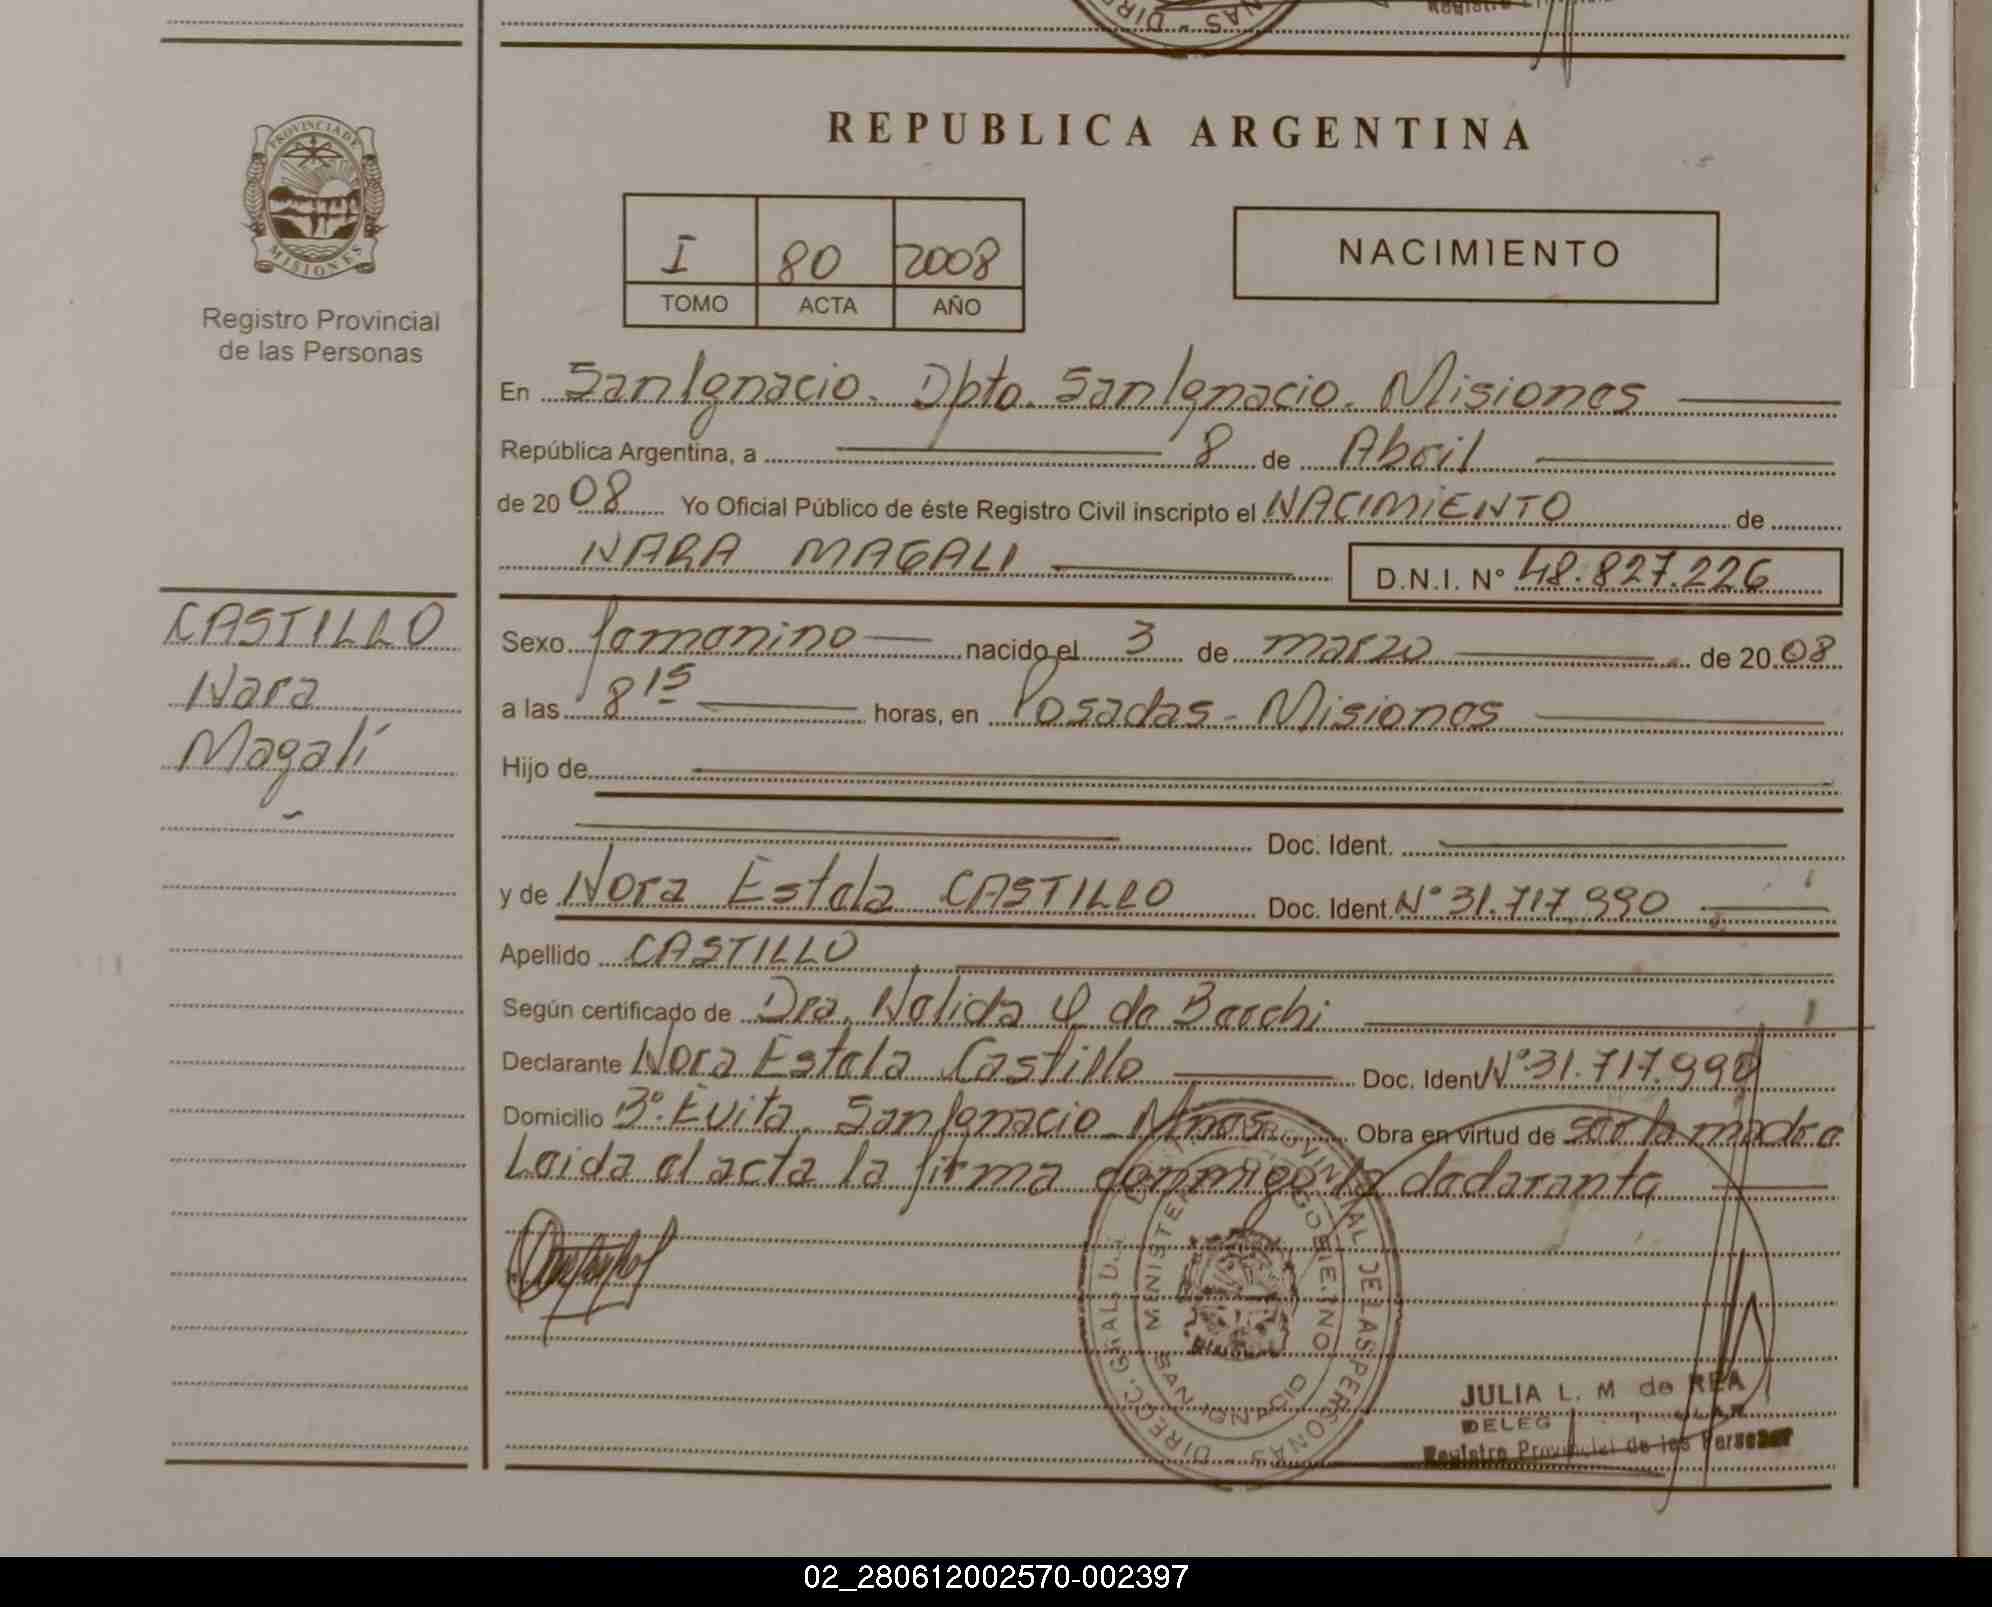 PROVINCIA DE
MISIONES
Registro Provincial
de las Personas
REPUBLICA ARGENTINA
I 80 2008
TOMO ACTA AÑO
NACIMIENTO
En San Ignacio. Dpto. San Ignacio. Misiones
República Argentina, a 8 de Abril
de 2008 Yo Oficial Público de éste Registro Civil inscripto el NACIMIENTO de
NARA MAGALI D.N.I. N° 48.827.226
CASTILLO
Nara
Magalí
Sexo femenino nacido el 3 de marzo de 2008
a las 8 15 horas, en Posadas - Misiones
Hijo de
Doc. Ident.
y de Nora Estela CASTILLO Doc. Ident. N° 31.717.990
Apellido CASTILLO
Según certificado de Dra. Nelida de
Declarante Nora Estela Castillo Doc. Ident N° 31.717.990
Domicilio B°. Evita. San Ignacio Mnes. Obra en virtud de ser la madre
Leida el acta la firma conmigo la declarante
DIRECC. GRAL. PROVINCIAL DE LAS PERSONAS
MINISTERIO GOBIERNO
SAN IGNACIO
JULIA L. M de REA
DELEG
Registro Provincial de las Personas
02_280612002570-002397